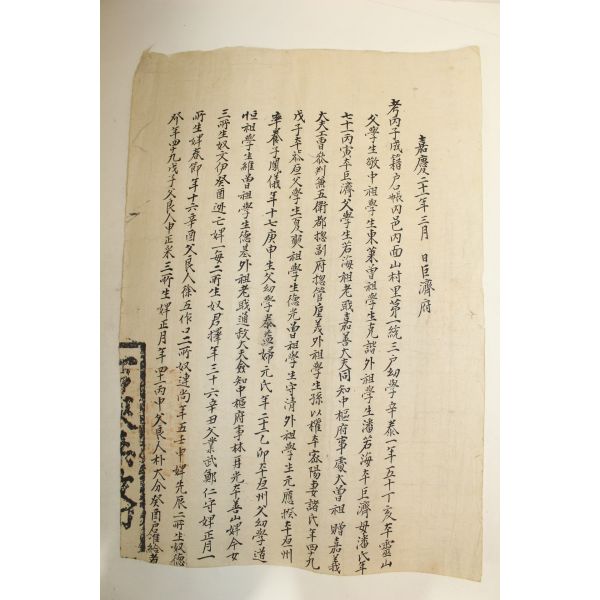 嘉慶二十一年三月 日巨濟府
考丙子成籍戶帳內邑內面山村里第一統三戶幼學辛泰一年五十丁亥本靈山
父學生敬中祖學生東萊曾祖學生克諧外祖學生潘若海本巨濟母潘氏年
七十一丙寅本巨濟父學生若海祖老職嘉善大夫同知中樞府事處大曾祖 贈嘉義
大夫工曹參判兼五衛都摠副府摠管 義外祖學生孫以權本密陽妻諸氏年四十九
戊子本 父學生夏 祖學生德光曾祖學生守清外祖學生元應 本原州
率養子鳳儀年十七庚申生父幼學泰 婦元氏年二十二乙卯本原州父幼學道
恒祖學生維 曾祖學生德基外祖老職通政大夫僉知中樞府事林再光本善山婢今女
三所生奴文伊癸酉逃亡婢一每二所生奴君擇年三十六辛丑父業武鄭仁守婢正月一
所生婢春節年十六辛酉父良人徐五作 二所奴達尚年五壬申婢先辰二所生奴德
年四十九戊子父良人申正采三所生婢正月年四十一丙申父良人朴大分癸酉戶 給者